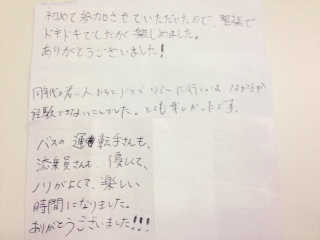 初めて参加させていただいたので、緊張で
ドキドキでしたが楽しめました。
ありがとうございました！
同年代の人たちとバスでツアーに行くのは、なかなか
経験できないことでした。とても楽しかったです。
バスの運転手さんも、
添乗員さんも、優しくて、
ノリがよくて、楽しい
時間になりました。
ありがとうございました!!!